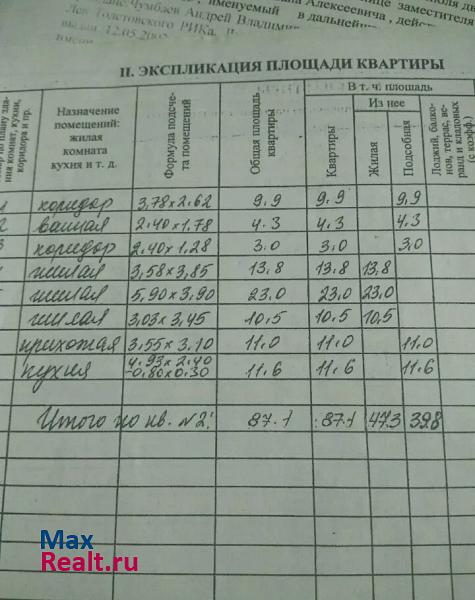 , именуемый в дальнейшем
Чумблев Андрей Владими
Лев Толстовского РИКа,
выдан 12.05.
II. ЭКСПЛИКАЦИЯ ПЛОЩАДИ КВАРТИРЫ
по плану зда-
ния комнат, кухни,
коридора и пр.
Назначение
помещений:
жилая
комната
кухня и т. д.
Формула подсче-
та помещений
Общая площадь
квартиры
В т. ч. площадь
Квартиры
Из нее
Жилая
Подсобная
Лоджий, балко-
нов, террас, ве-
ранд и кладовых
(с коэфф.)
коридор 3,78×2.62 9.9 9.9 9,9
2 ванная 2.40×1.78 4.3 4.3 4.3
3 коридор 2.40×1.28 3.0 3,0 3,0
жилая 3,58×3,85 13,8 13,8 13,8
жилая 5,90×3,90 23,0 23,0 23,0
жилая 3,03×3,45 10,5 10,5 10,5
прихожая 3,55×3.10 11.0 11.0 11.0
кухня 4.93×2.40 11.6 11.6 11.6
-0,80×0,30
Итого по кв. №2: 87.1 87.1 47.3 39.8
Max
Realt.ru